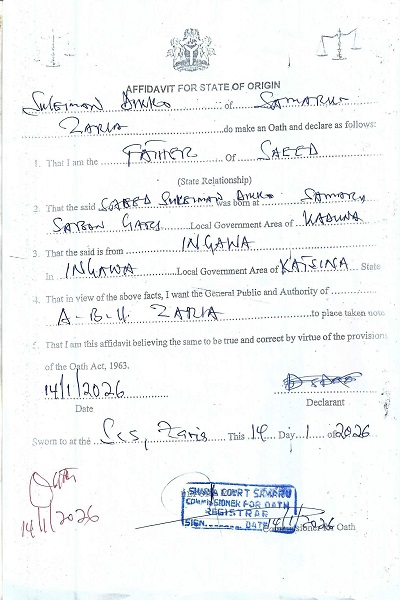 AFFIDAVIT FOR STATE OF ORIGIN
SULEIMAN DIKKO of SAMARU
ZARIA do make an Oath and declare as follows:
1. That I am the FATHER OF SAEED
(State Relationship)
2. That the said SAEED SULEIMAN DIKKO was born at SAMARU
SABON GARI Local Government Area of KADUNA
3. That the said is from INGAWA
In INGAWA Local Government Area of KATSINA State
4. That in view of the above facts, I want the General Public and Authority of
A-B-U ZARIA to place taken note
5. That I am this affidavit believing the same to be true and correct by virtue of the provisions
of the Oath Act, 1963.
14/1/2026
Date Declarant
Sworn to at the Scs, Zaria This 14 Day 1 of 2026
Oath
14/1/2026
SHARIA COURT SAMARU
COMMISSIONER FOR OATH
REGISTRAR
SIGN. DATE 14/1/2026
Commissioner for Oath